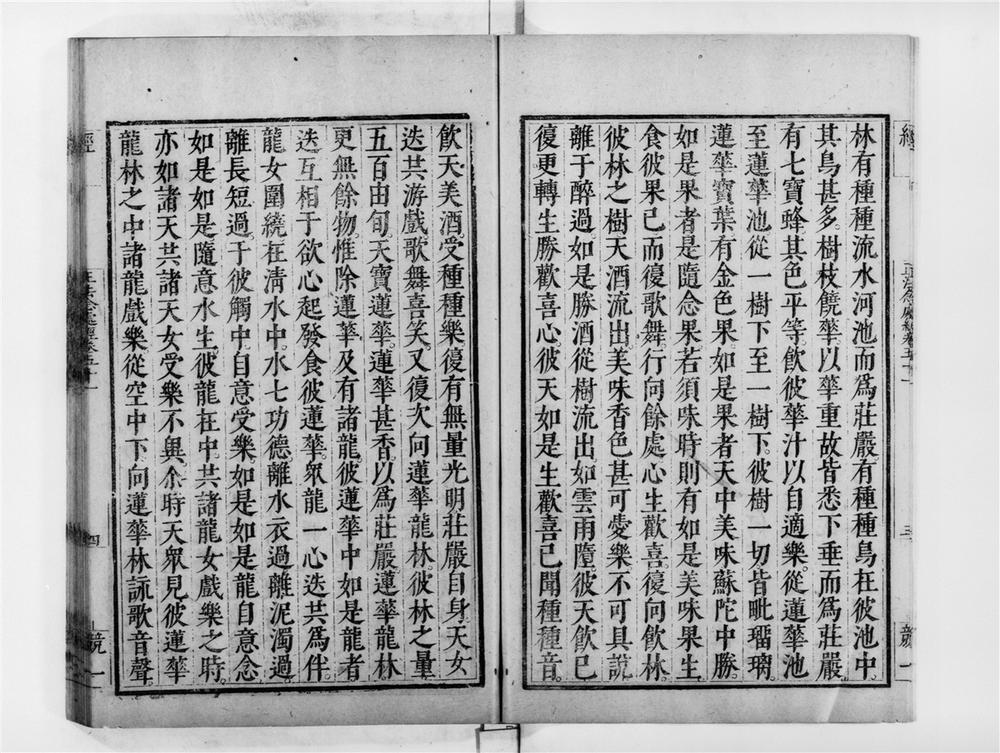 林有種種流水河池而爲莊嚴有種種鳥在彼池中
其鳥甚多樹枝饒華以華重故皆悉下垂而爲莊嚴
有七寶蜂其色平等飲彼華汁以自適樂從蓮華池
至蓮華池從一樹下至一樹下彼樹一切皆毗瑠璃
蓮華寶葉有金色果如是果者天中美味蘇陀中勝
如是果者是隨念果若須味時則有如是美味果生
食彼果已而復歌舞行向餘處心生歡喜復向飲林
彼林之樹天酒流出美味香色甚可愛樂不可具說
離于醉過如是勝酒從樹流出如雲雨墮彼天飲已
復更轉生勝歡喜心彼天如是生歡喜已聞種種音
飲天美酒受種種樂復有無量光明莊嚴自身天女
迭共游戲歌舞喜笑又復次向蓮華龍林彼林之量
五百由旬天寶蓮華蓮華甚香以爲莊嚴蓮華龍林
更無餘物惟除蓮華及有諸龍彼蓮華中如是龍者
迭互相于欲心起發食彼蓮華衆龍一心迭共爲伴
龍女圍繞在清水中水七功德離水衣過離泥濁過
離長短過于彼觸中自意受樂如是如是龍自意念
如是如是隨意水生彼龍在中共諸龍女戲樂之時
亦如諸天共諸天女受樂不異余時天衆見彼蓮華
龍林之中諸龍戲樂從空中下向蓮華林詠歌音聲
經
四
競一